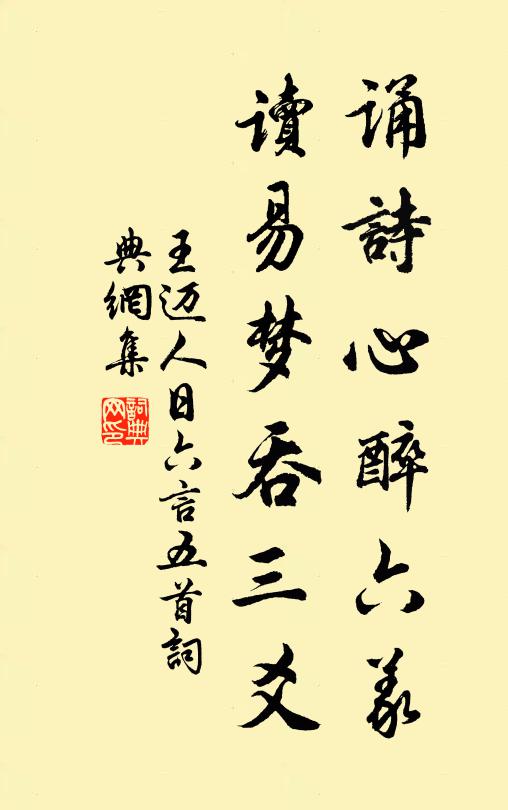 诵詩心醉六義
讀易梦吞三爻
王迈人日六言五首詞
典網集
詞典
网印